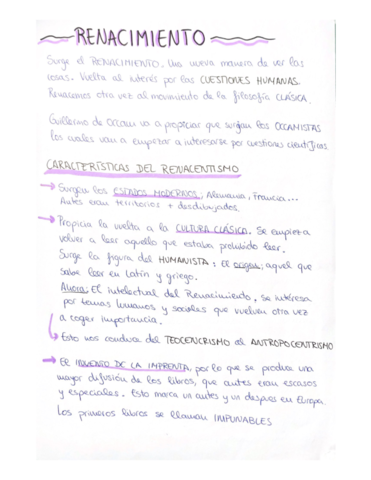 RENACIMIENTO
Surge el RENACIMIENTO. Una nueva manera de ver las
cosas. Vuelta al interés por las CUESTIONES HUMANAS.
Renacemos otra vez al movimiento de la filosofía CLÁSICA.
Guillermo de Occam va a propiciar que surjan los OCCAMISTAS
los cuales van a empezar a interesarse por cuestiones científicas.
CARACTERÍSTICAS DEL RENACENTISMO
Surgen los ESTADOS MODERNOS, Alemania, Francia...
Antes eran territorios + desdibujados.
Propicia la vuelta a la CULTURA CLÁSICA. Se empieza
volver a leer aquello que estaba prohibido leer.
Surge la figura del HUMANISTA: El origen; aquel que
sabe leer en latín y griego.
Ahora; El intelectual del Renacimiento, se interesa
por temas humanos y sociales que vuelven otra vez
a coger importancia.
Esto nos conduce del TEOCENCRISMO al ANTROPOCENTRISMO
El INVENTO DE LA IMPRENTA, por lo que se produce una
mayor difusión de los libros, que antes eran escasos
y especiales. Esto marca un antes y un despues en Europa.
Los primeros libros se llaman IMPUNABLES